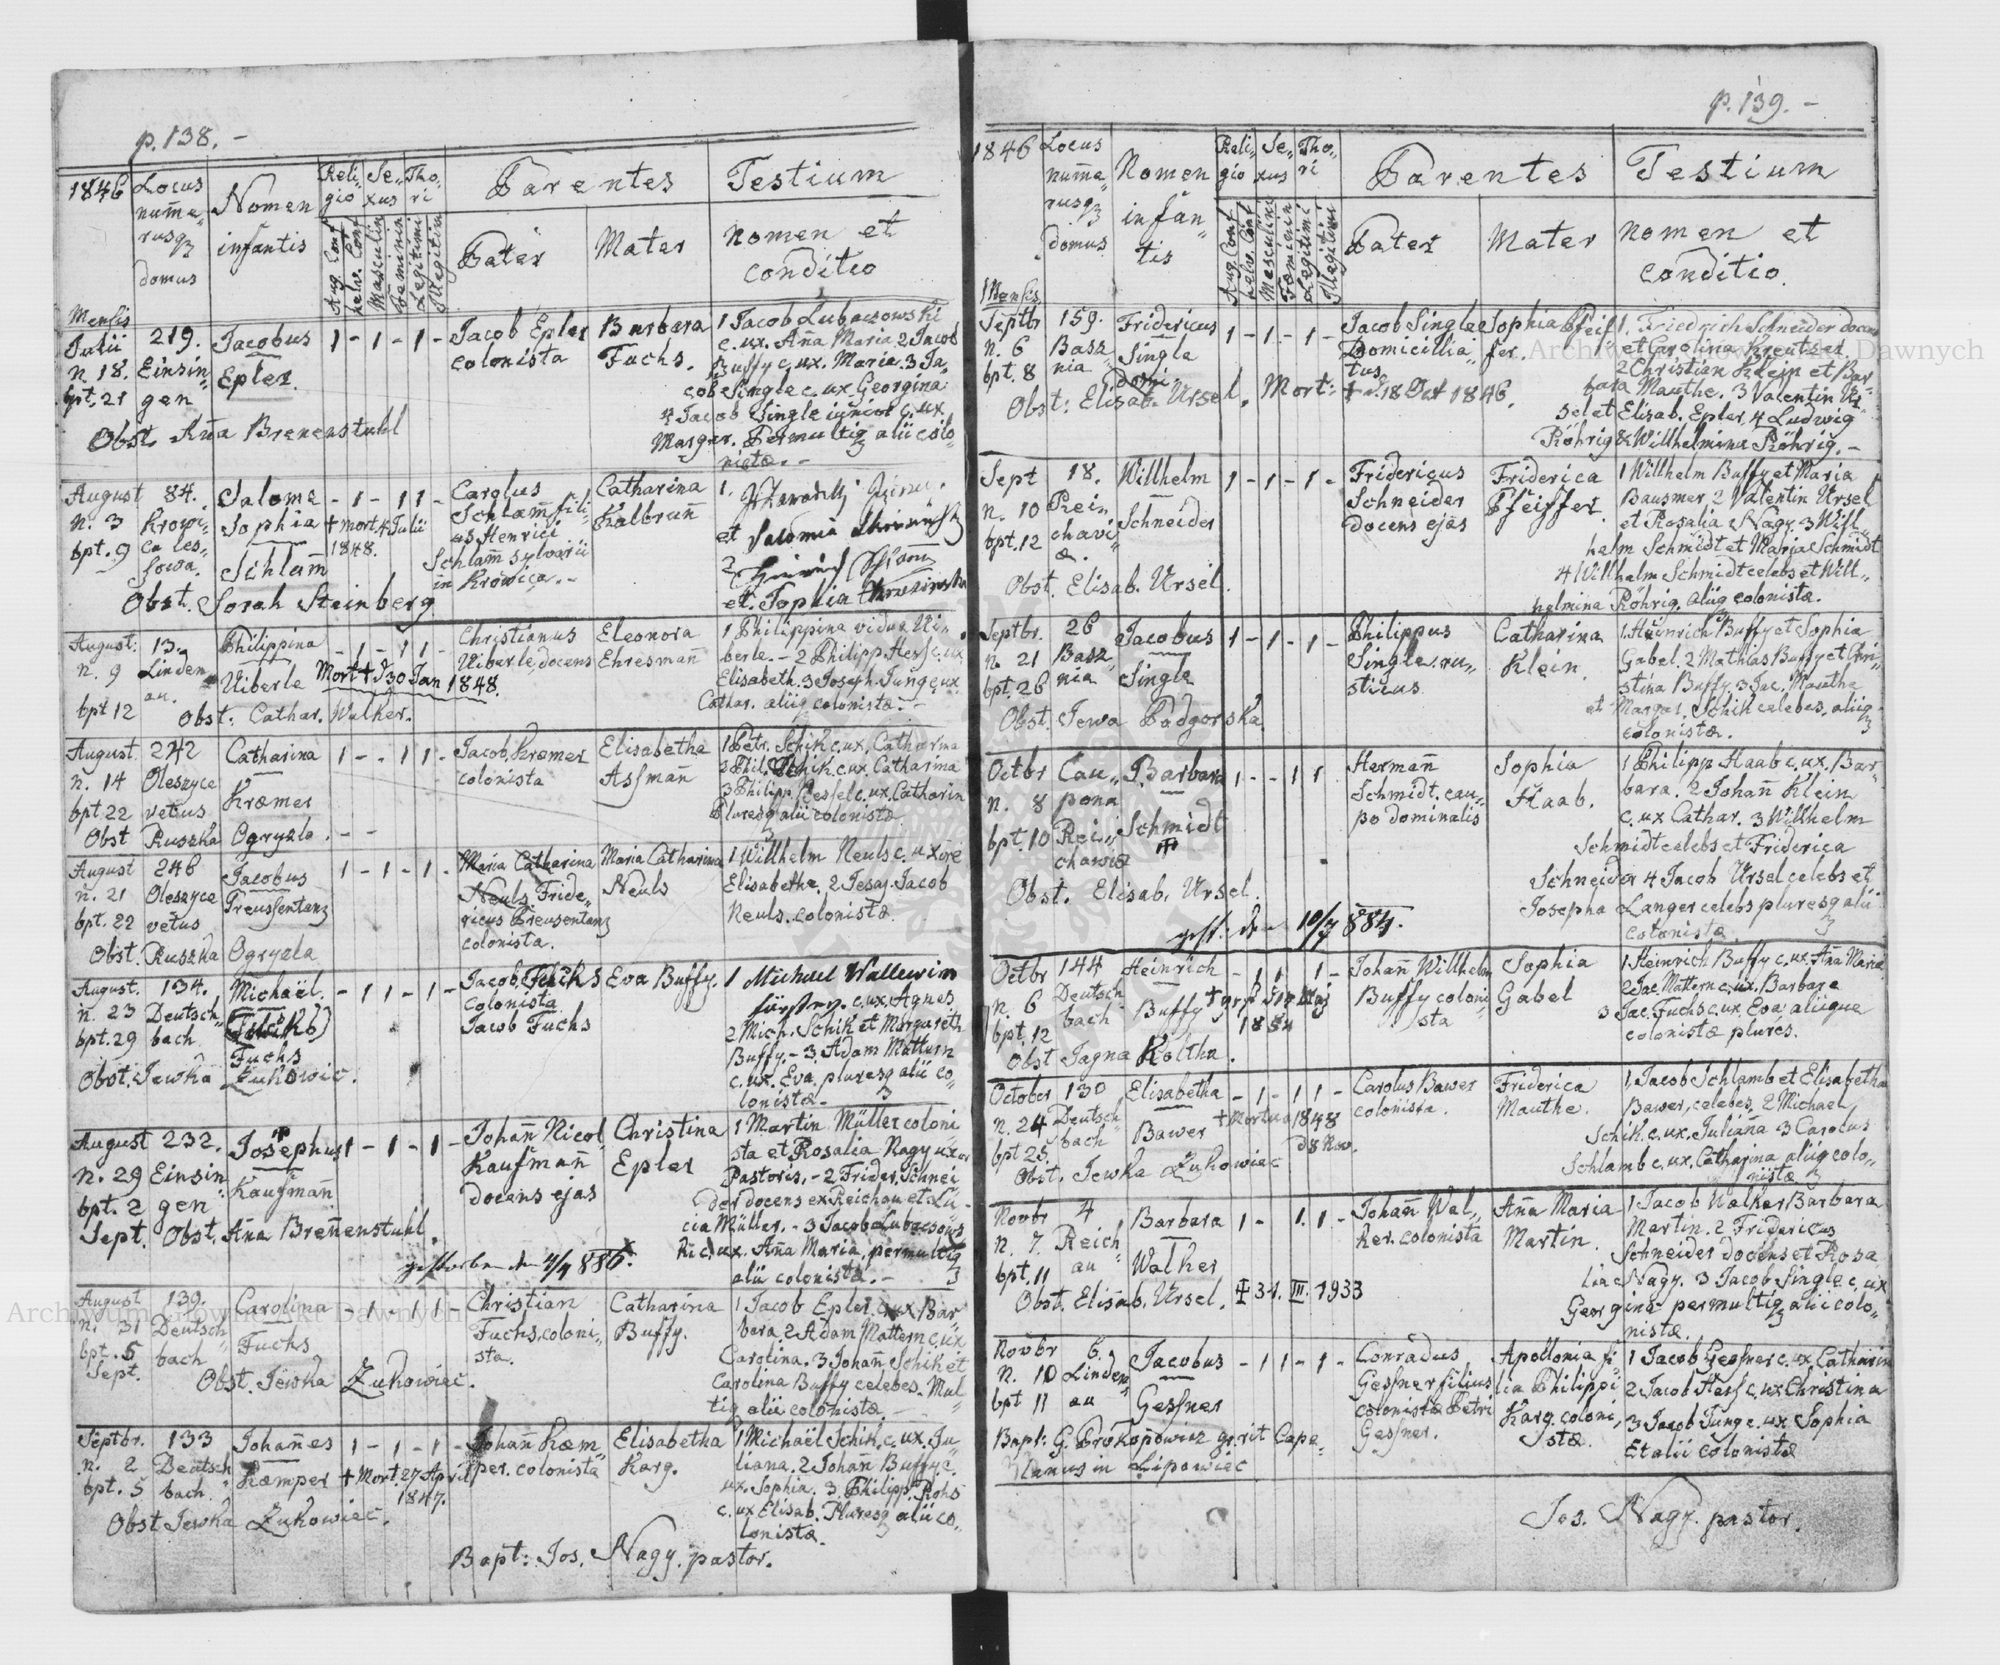 p. 138. -
1846 Locus numerusq domus
Nomen infantis
Religio Sexus Thori
Aug. Conf helv. Conf Masculin Feminin Legitimi Illegitim
Parentes
Pater Mater
Testium
nomen et
conditio
Mensis
Julii 219. Jacobus 1 - 1 - 1 - Jacob Epler Barbara 1 Jacob Lubaczowski
n. 18. Einsin- Epler. colonista Fuchs. c. ux. Aña Maria 2 Jacob
bpt. 21 gen Buffy c. ux. Maria. 3 Ja-
cob Single c. ux Georgina
4 Jacob Single iunior c. ux
Obst. Aña Brenenstuhl Margar. Permultiq alii colo-
nistæ. -
August 84. Salome - 1 - 1 1 - Carolus Catharina 1.
n. 3 Krowi- Sophia + mort. 4 Julii Schlam̄ fili- Kalbrun̄
bpt. 9 ca les- 1848. us Henrici et Salomia
sowa. Schlam̄ Schlam̄ sylvarii 2
in Krowica. -
Obst. Sorah Steinberg et. Sophia
August. 13. Philippina - 1 - 1 1 - Christianus Eleonora 1 Philippina vidua Ui-
n. 9 Linden Uiberle, docens Ehresman̄ berle. - 2 Philipp Hess c. ux
au. Uiberle Mort + d 30 Jan 1848. Elisabeth. 3 Joseph Jung c. ux
bpt 12 Obst: Cathar. Walker. Cathar. aliiq colonistæ. -
August 242 Catharina 1 - - 1 1 - Jacob Kræmer Elisabetha 1 Petr. Schik c. ux. Catharina
n. 14 Oleszyce colonista Assman̄ 2 Phil. Schik c. ux. Catharina
bpt. 22 vetus Kræmer 3 Philipp Gessel c. ux. Catharin
Obst Ruszka Ogryzla. - - Pluresq alii colonistæ
August 246 Jacobus 1 - 1 - 1 - Maria Catharina Maria Catharina 1 Willhelm Neuls c. uxore
n. 21 Oleszyce Preussentanz Neuls Fride- Neuls Elisabetha. 2 Jesaj. Jacob
bpt. 22 vetus ricus Preusentanz Neuls. colonistæ.
Obst. Ruszka Ogryzla colonista.
August. 134. Michaël. - 1 1 - 1 - Jacob Eva Buffy. 1 Michael Wallewein
n. 23 Deutsch- colonista c. ux. Agnes
bpt. 29 bach Fuchs Jacob Fuchs 2 Mich. Schik et Margareth
Obst. Jewka Zukowic. Buffy. - 3 Adam Mattern
c. ux. Eva. pluresq alii co-
lonistæ.
August 232. Josephus 1 - 1 - 1 - Johan̄ Nicol. Christina 1 Martin Müller coloni
n. 29 Einsin- Kaufman̄ Kaufman̄ Epler sta et Rosalia Nagy uxor
bpt. 2 gen docens ejas Pastoris. - 2 Frider. Schnei
Sept. Obst. Aña Breñenstuhl. der docens ex Reichau et Lu-
cia Müller. - 3 Jacob Lubaczows
ki c. ux. Aña Maria, permultiq
gestorben den 4/4 886. alii colonistæ. -
August 139. Carolina - 1 - 1 1 - Christian Catharina 1 Jacob Epler c. ux Bar-
n. 31 Deutsch Fuchs Fuchs, coloni- Buffy. bara. 2 Adam Mattern c. ux
bpt. 5 bach sta. Carolina. 3 Johan̄ Schik et
Sept. Obst. Jewka Zukowiec. Carolina Buffy celebes. Mul-
tiq alii colonistæ
Septbr. 133 Johañes 1 - 1 - 1 - Johan̄ Kæm- Elisabetha 1 Michaël Schik, c. ux. Ju-
n. 2 Deutsch Kæmper + Mort. 27 April per. colonista Karg. liana. 2 Johan̄ Buffy c.
bpt. 5 bach. 1847. ux. Sophia. 3. Philipp Rohs
Obst Jewka Zukowiec. c. ux Elisab. Pluresq alii co-
lonistæ.
Bapt: Jos. Nagy. pastor.
p. 139. -
1846 Locus numerusq domus
Nomen infantis
Religio Sexus Thori
Aug. Conf helv. Conf Masculini Feminin Legitimi Illegitimi
Parentes
Pater Mater
Testium
nomen et
conditio.
Mensis
Septbr 159. Fridericus 1 - 1 - 1 - Jacob Single Sophia Pfeif 1. Friedrich Schneider docens
n. 6 Basz Single Domicillia- fer. et Carolina Kreutzer
bpt. 8 nia domi tus 2 Christian Klein et Bar-
Obst: Elisab. Ursel. Mort: + d 18 Oct 1846. bara Mauthe. 3 Valentin Ur-
sel et Elisab. Epler, 4 Ludwig
Röhrig & Willhelmina Röhrig. -
Sept 18. Willhelm 1 - 1 - 1 - Fridericus Friderica 1 Willhelm Buffy et Maria
n. 10 Rein Schneider Schneider Pfeiffer. Bausmer 2 Valentin Ursel
bpt. 12 chavi- docens ejas et Rosalia Nagy 3 Will-
æ. helm Schmidt et Maria Schmidt
4 Willhelm Schmidt celebs et Will-
Obst. Elisab. Ursel. helmina Röhrig. aliiq colonistæ.
Septbr. 26 Jacobus 1 - 1 - 1 - Philippus Catharina 1. Heinrich Buffy et Sophia
n. 21 Basz Single Single. ru- Klein. Gabel. 2 Mathias Buffy et Chri-
bpt. 26 nia sticus stina Buffy. 3 Jac. Mautha
Obst. Jewa Padgorska. et Margar. Schik celebes, aliiq
colonistæ.
Octbr Cau- Barbara 1 - - 1 1 Herman̄ Sophia 1 Philipp Haab c. ux. Bar-
n. 8 pona Schmidt. cau- Haab. bara. 2 Johan̄ Klein
bpt. 10 Rei- Schmidt po dominalis c. ux Cathar. 3 Willhelm
chaviæ Schmidt celebs et Friderica
Obst. Elisab. Ursel. Schneider 4 Jacob Ursel celebs et
Josepha Langer celebs pluresq alii
gest: den 10/7 884. colonistæ
Octbr 144 Heinrich - 1 1 1 - Johan̄ Willhelm Sophia 1 Heinrich Buffy c. ux. Aña Maria
n. 6 Deutsch Buffy Buffy coloni- Gabel 2 Jac Mattern c. ux. Barbara
bpt. 12 bach 1884 sta 3 Jac. Fuchs c. ux Eva, aliique
Obst Jagna Koltka. colonistæ plures.
October 130 Elisabetha - 1 - 1 1 - Carolus Bawer Friderica 1. Jacob Schlamb et Elisabetha
n. 24 Deutsch Bawer + Mortua 1848 colonista. Mauthe. Bawer, celebes. 2 Michael
bpt 25. bach d 8 Nov. Schik c. ux. Juliaña 3 Carolus
Obst. Jewka Zukowiec Schlamb c. ux. Catharina aliiq colo-
nistæ
Novbr 4 Barbara 1 - 1. 1 - Johan̄ Wal- Aña Maria 1 Jacob Walker, Barbara
n. 7. Reich Walker ker. colonista Martin. Martin. 2 Fridericus
bpt. 11 au Schneider docens et Rosa
Obst. Elisab. Ursel. 31. III. 1933 lia Nagy. 3 Jacob Single c. ux
Georgina permultiq alii colo-
nistæ.
Novbr 6. Jacobus - 1 1 - 1 - Conradus Apollonia fi- 1 Jacob Gessner c. ux. Catharin
n. 10 Linden Gessner Gessner filius lia Philippi 2 Jacob Hess c. ux Christina
bpt 11 au colonistæ Petri Karg. coloni- 3 Jacob Jung c. ux Sophia
Bapt: G. Prokopowicz gr. rit Cape- Gessner. stæ. Et alii colonistæ
llanus in Lipowiec
Jos. Nagy. pastor.
Archiwum Główne Akt Dawnych
Archiwum Główne Akt Dawnych